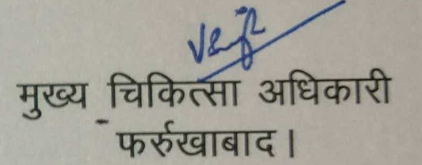 मुख्य चिकित्सा अधिकारी
फर्रुखाबाद।